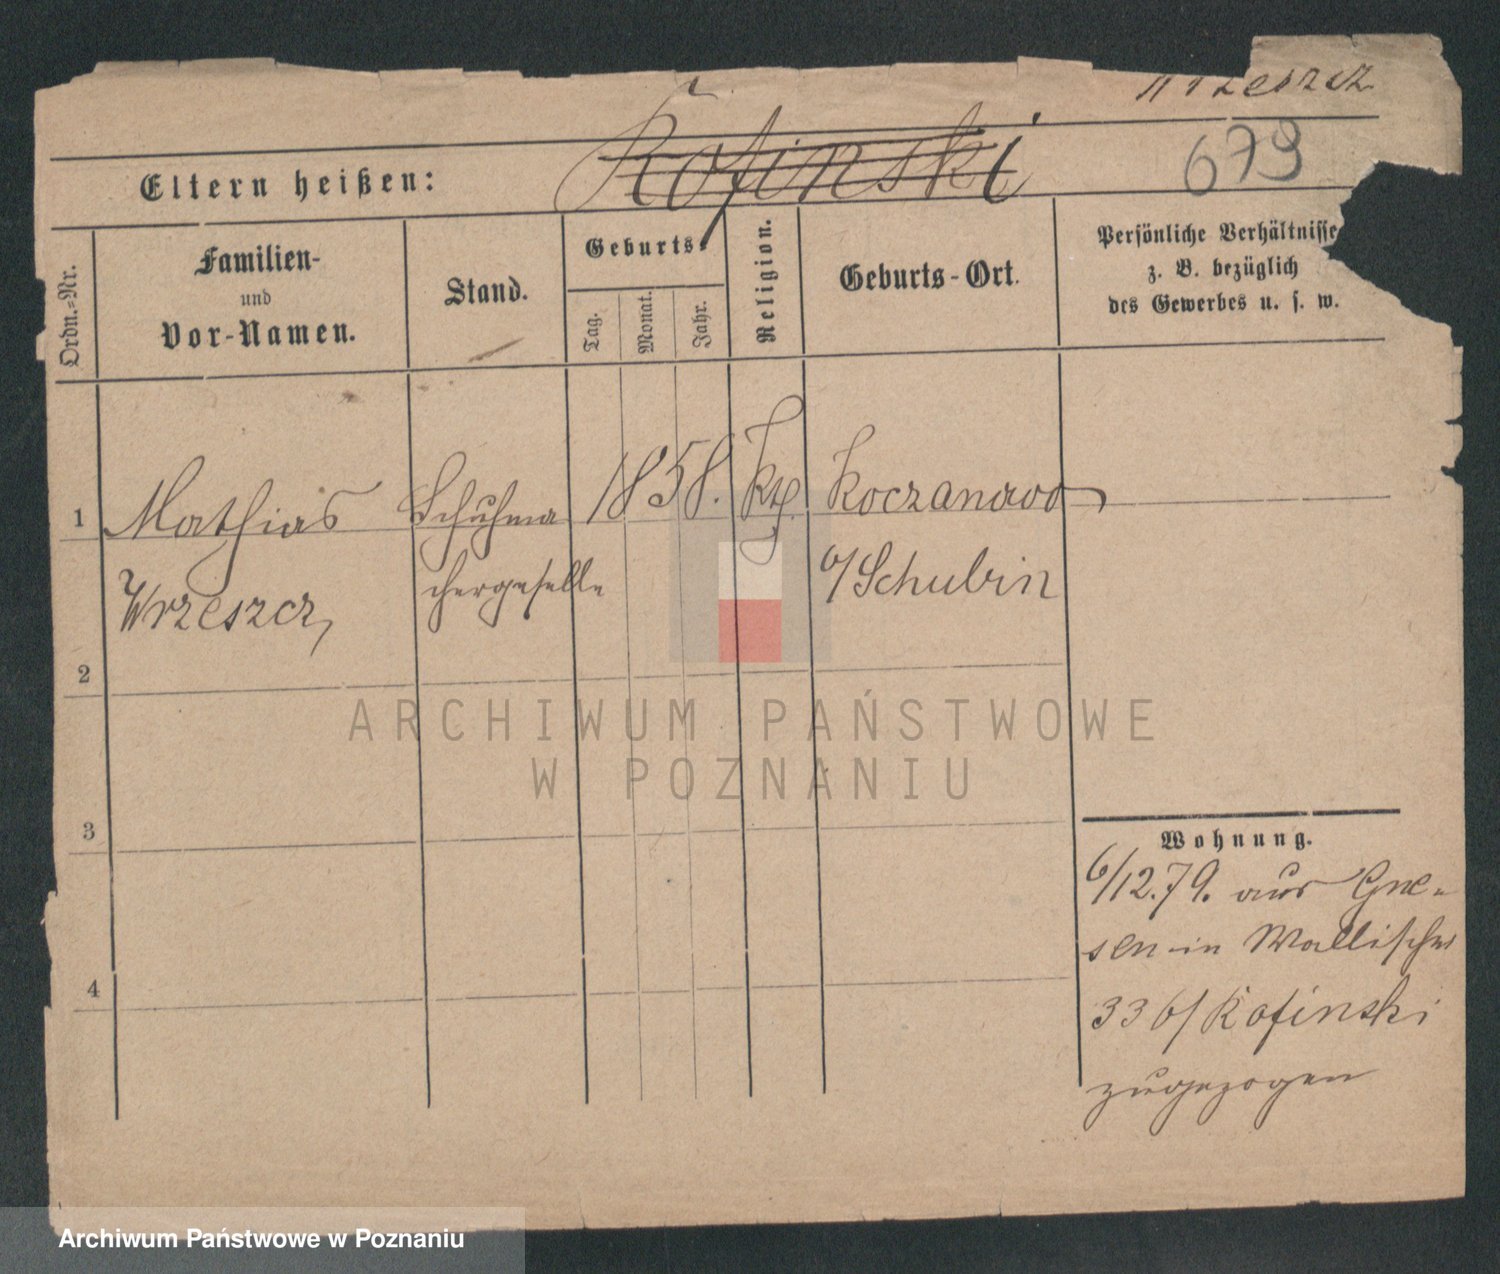 Wrzeszcz
679
Eltern heißen: Kosinski
Ordn.-Nr.
Familien-
und
Vor-Namen.
Stand.
Geburts-
Tag.
Monat.
Jahr.
Religion.
Geburts-Ort.
Persönliche Verhältnisse
z. B. bezüglich
des Gewerbes u. s. w.
1 Mathias Schuhma 1858. kth. Koczanowo
Wrzeszcz, chergeselle b/Schubin
2
3
4
ARCHIWUM PAŃSTWOWE
W POZNANIU
Wohnung.
6/12.79. aus Gne-
sen in Wallischei
33 b/Kosinski
zugezogen
Archiwum Państwowe w Poznaniu